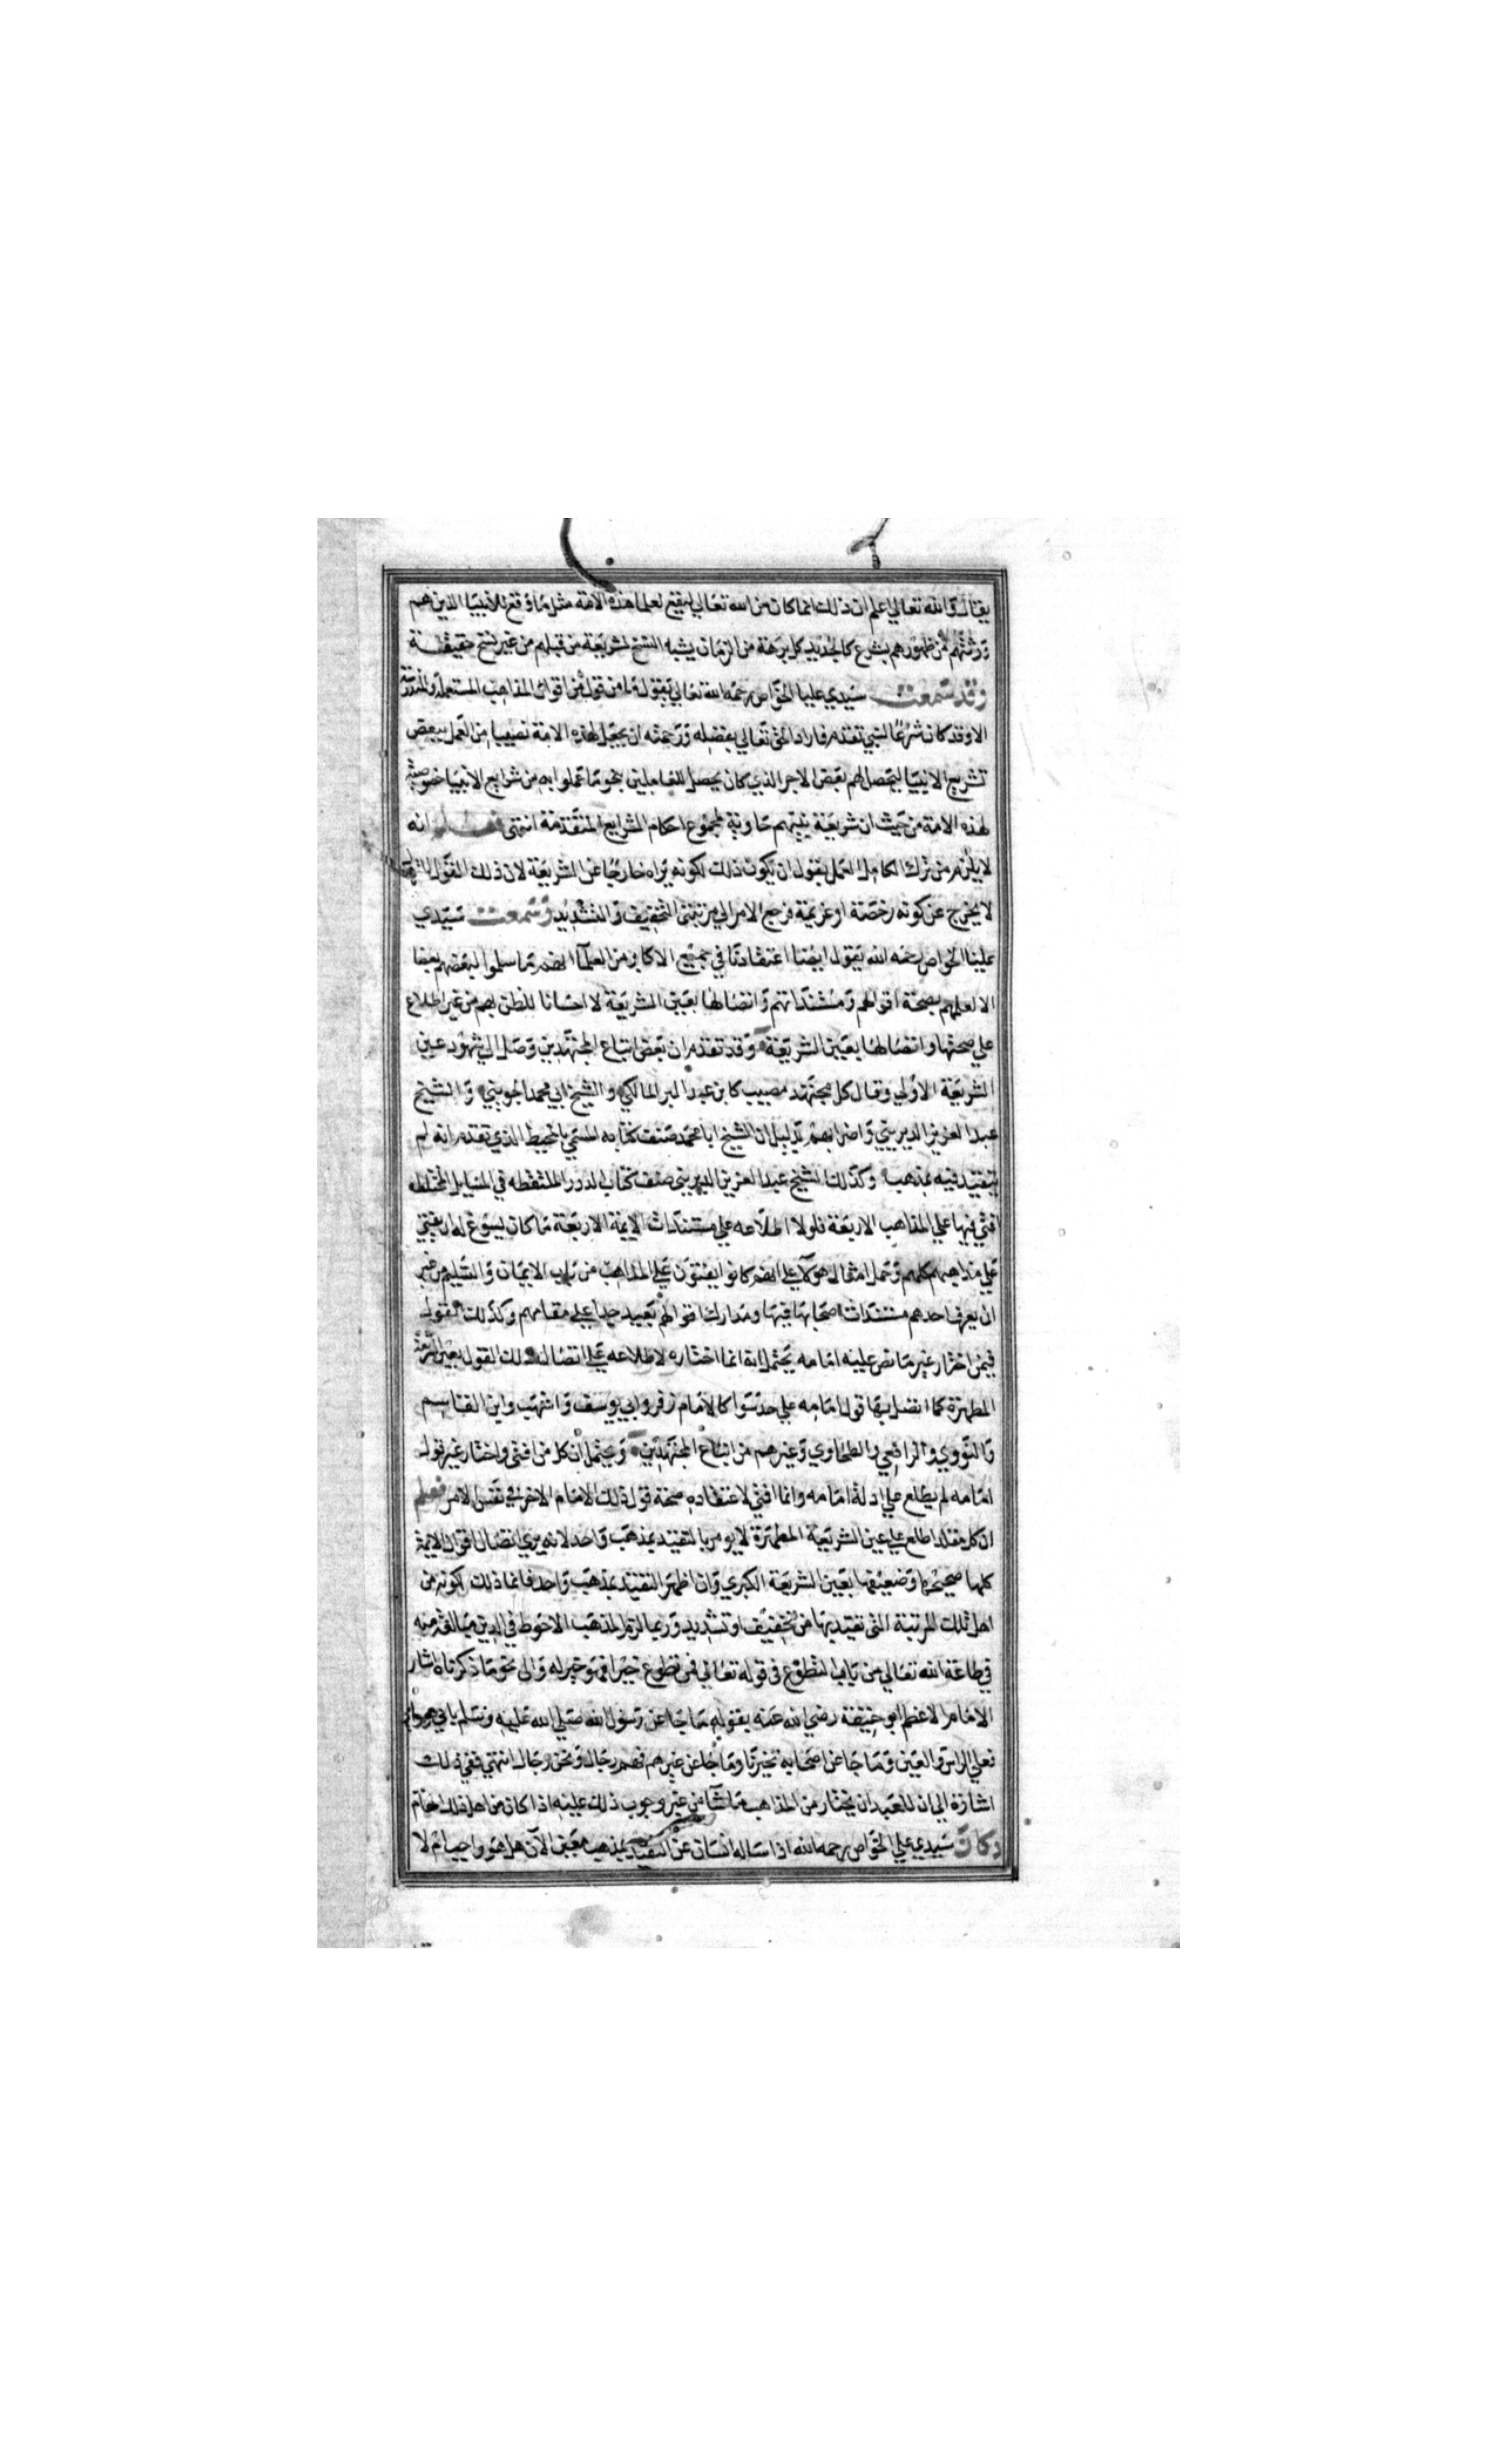 يقال والله تعالي اعلم ان ذلك انما كان من الله تعالي ليقع لعلما هذه الامة مثل ما وقع للانبيا الذين هم
ورثتهم من ظهورهم بشرع كالجديد كل برهة من الزمان يشبه النسخ لشريعة من قبلهم من غير نسخ حقيقة
وقد سمعت سيدي عليا الخواص رحمه الله تعالي يقول ما من قول من اقوال المذاهب المستعملة والمندرسة
الا وقد كان شرعا لنبي تقدم فاراد الحق تعالي بفضله ورحمته ان يجعل لهذه الامة نصيبا من العمل ببعض
تشريع الانبيا ليحصل لهم بعض الاجر الذي كان يحصل للعاملين بنحو ما عملوا به من شرايع الانبيا خصوصية
لهذه الامة من حيث ان شريعة نبيهم حاوية لمجموع احكام الشرايع المتقدمة انتهي فعلم انه
لا يلزم من ترك الكامل العمل بقول ان يكون ذلك لكونه يراه خارجا عن الشريعة لان ذلك القول
لا يخرج عن كونه رخصة او عزيمة فرجع الامر الي مرتبتي التخفيف والتشديد وسمعت سيدي
عليا الخواص رحمه الله يقول ايضا اعتقادنا في جميع الاكابر من العلما انهم ما سلموا لبعضهم بعضا
الا لعلمهم بصحة اقوالهم ومستنداتهم واتصالها بعين الشريعة لا احسانا للظن بهم من غير اطلاع
علي صحتها واتصالها بعين الشريعة وقد تقدم ان بعض اتباع المجتهدين وصل الي شهود عين
الشريعة الاولي وقال كل مجتهد مصيب كابن عبد البر المالكي والشيخ ابي محمد الجويني والشيخ
عبد العزيز الديريني واضرابهم بدليل ان الشيخ ابا محمد صنف كتابه المسمي بالمحيط الذي تقدم انه لم
يتقيد فيه بمذهب وكذلك الشيخ عبد العزيز الديريني صنف كتاب الدرر الملتقطه في المسايل المختلطه
افتي فيها علي المذاهب الاربعة فلولا اطلاعه علي مستندات الايمة الاربعة ما كان يسوغ له ان يفتي
علي مذاهبهم كلهم وحمل امثال هولآ علي انهم كانوا يفتون علي المذاهب من باب الايمان والتسليم من غير
ان يعرف احدهم مستندات اصحابها فيها ومدارك اقوالهم بعيد جدا علي مقامهم وكذلك القول
فيمن اختار غير ما نص عليه امامه يحتمل انه انما اختاره لاطلاعه علي اتصال ذلك القول بعين الشريعة
المطهرة كما اتصل بها قول امامه علي حد سوا كالامام زفر وابي يوسف واشهب وابن القاسم
والنووي والرافعي والطحاوي وغيرهم من اتباع المجتهدين ويحتمل ان كل من افتي واختار غير قول
امامه لم يطلع علي ادلة امامه وانما افتي لاعتقاده صحة قول ذلك الامام الاخر في نفس الامر فعلم
ان كل مقلد اطلع علي عين الشريعة المطهرة لا يومر بالتقيد بمذهب واحد لانه يري اتصال اقوال الايمة
كلها صحيحها وضعيفها بعين الشريعة الكبري وان اظهر التقيد بمذهب واحد فانما ذلك لكونه من
اهل تلك المرتبة التي تقيد بها من تخفيف او تشديد وربما لزم المذهب الاحوط في الدين مبالغة منه
في طاعة الله تعالي من باب التطوع في قوله تعالي فمن تطوع خيرا فهو خير له والي نحو ما ذكرناه اشار
الامام الاعظم ابو حنيفة رضي الله عنه بقوله ما جا عن رسول الله صلي الله عليه وسلم بابي هو وامي
فعلي الراس والعين وما جا عن اصحابه تخيرنا وما جا عن غيرهم فهم رجال ونحن رجال انتهي ففي ذلك
اشارة الي ان للعبد ان يختار من المذاهب ما شآ من غير وجوب ذلك عليه اذا كان من اهل ذلك المقام
وكان سيدي علي الخواص رحمه الله اذا ساله انسان عن التقيد بمذهب معين الآن هل هو واجب ام لا